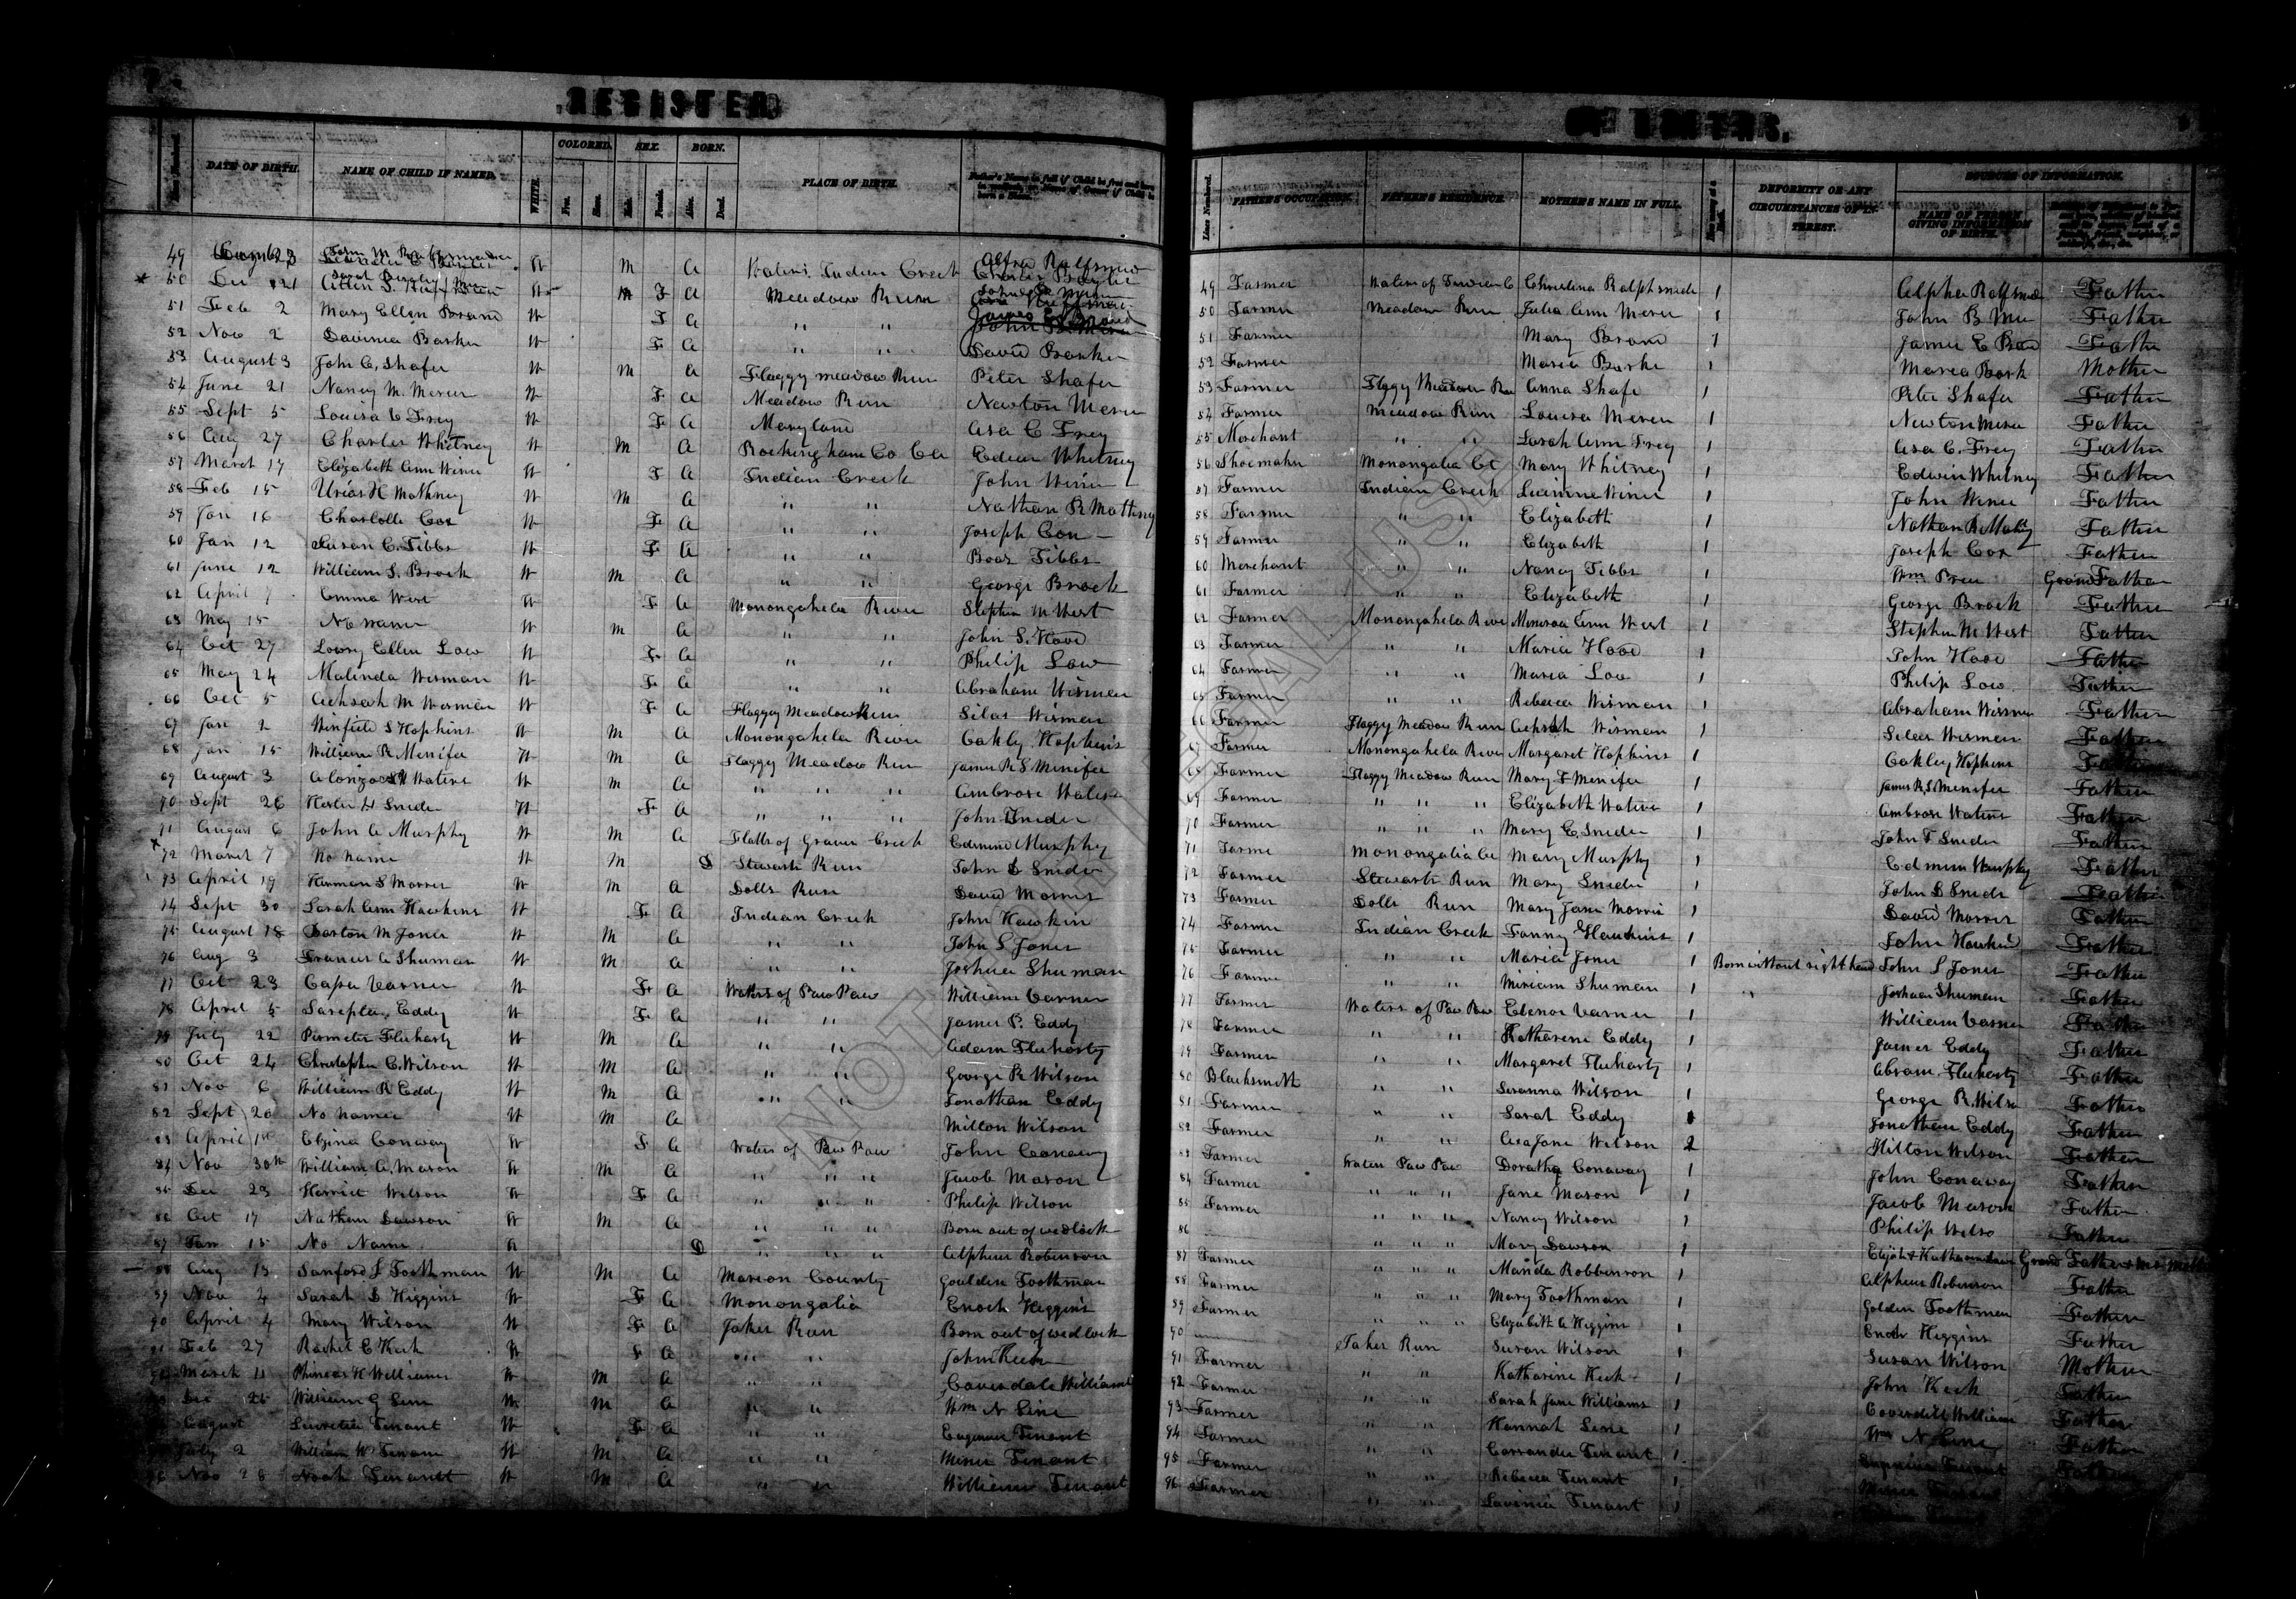 REGISTER
OF BIRTHS.
Line Numbered. DATE OF BIRTH. NAME OF CHILD IF NAMED. WHITE. COLORED. Free. Slave. SEX. Male. Female. BORN. Alive. Dead. PLACE OF BIRTH. Father's Name in full if Child is free and born in wedlock, or Name of Owner if Child is born a Slave.
Line Numbered. FATHER'S OCCUPATION. FATHER'S RESIDENCE. MOTHER'S NAME IN FULL. DEFORMITY OR ANY CIRCUMSTANCES OF INTEREST. SOURCES OF INFORMATION. NAME OF PERSON GIVING INFORMATION OF BIRTH.
49 W M A Waters Indian Creek
50 Dec 21 W F A Meadow Run
51 Feb 2 Mary Ellen Brand W F A " " James E Brand
52 Nov 2 Lavinia Barker W F A " " David Barker
53 August 3 John C. Shafer W M A Flaggy meadow Run Peter Shafer
54 June 21 Nancy M. Mercer W F A Meadow Run Newton Mercer
55 Sept 5 Louisa C Frey W F A Maryland Asa C Frey
56 Aug 27 Charles Whitney W M A Rockingham Co Edwin Whitney
57 March 17 Elizabeth Ann Winer W F A Indian Creek John Winer
58 Feb 15 Urias H Mathney W M A " " Nathan R Mathney
59 Jan 16 Charlotte Cox W F A " " Joseph Cox
60 Jan 12 Susan C. Tibbs W F A " " Boaz Tibbs
61 June 12 William S. Brock W M A " " George Brock
62 April 7 Emma West W F A Monongahela River Stephen M West
63 May 15 No name W M A " " John S. Hood
64 Oct 27 Lowry Ellen Low W F A " " Philip Low
65 May 24 Malinda Wisman W F A " " Abraham Wisman
66 Oct 5 Achsah M Wisman W F A Flaggy Meadow Run Silas Wisman
67 Jan 2 Winfield S Hopkins W M A Monongahela River Oakley Hopkins
68 Jan 15 William R Menifee W M A Flaggy Meadow Run James R S Menifee
69 August 3 Alonzo Waters W M A " " " Ambrose Waters
70 Sept 26 Snider W F A " " " John Snider
71 August 6 John A Murphy W M A Flatts of Graves Creek Edmund Murphy
72 March 7 No name W M D Stewarts Run John S Snider
73 April 19 Harman S Morris W M A Dolls Run David Morris
74 Sept 30 Sarah Ann Hawkins W F A Indian Creek John Hawkin
75 August 18 Barton M Jones W M A " " John S Jones
76 Aug 3 Francis A Shuman W M A " " Joshua Shuman
77 Oct 23 Varner W F A Waters of Paw Paw William Varner
78 April 5 Sarepta Eddy W F A " " James P. Eddy
79 July 22 Fluharty W M A " " Adam Fluharty
80 Oct 24 Christopher C. Wilson W M A " " George R Wilson
81 Nov 6 William R Eddy W M A " " Jonathan Eddy
82 Sept 20 No names W M A Milton Wilson
83 April 1st Elzina Conaway W F A Waters of Paw Paw John Conaway
84 Nov 30th William A. Mason W M A " " " Jacob Mason
85 Dec 23 Harriet Wilson W F A " " " Philip Wilson
86 Oct 17 Nathan Dawson W M A " " " Born out of wedlock
87 Jan 15 No Name W D " " " Alpheus Robinson
88 Aug 13 Sanford L Toothman W M A Marion County Goulden Toothman
89 Nov 4 Sarah D Higgins W F A Monongalia Enoch Higgins
90 April 4 Mary Wilson W F A Jakes Run Born out of wedlock
91 Feb 27 Rachel C Keck W F A " " John Keck
92 March 11 Phineas H Williams W M A " " Coverdale Williams
93 Dec 25 William G Line W M A " " Wm N Line
94 August Lucretia Tenant W F A " " Tenant
95 July 2 William W Tenant W M A " " Miner Tenant
96 Nov 28 Noah Tenant W M A " " William Tenant
49 Farmer Waters of Indian C Christina Ralphsnider 1 Father
50 Farmer Meadow Run Julia Ann Mercer 1 John B Father
51 Farmer Mary Brand 1 James E Father
52 Farmer Maria Barker 1 Maria Bark Mother
53 Farmer Flggy Meadow Run Anna Shafe 1 Peter Shafer Father
54 Farmer Meadow Run Louisa Mercer 1 Newton Mercer Father
55 Merchant " " Sarah Ann Frey 1 Asa C. Frey Father
56 Shoemaker Monongalia Co Mary Whitney 1 Edwin Whitney Father
57 Farmer Indian Creek Winer 1 John Winer Father
58 Farmer " " Elizabeth 1 Nathan R Father
59 Farmer " " Elizabeth 1 Joseph Cox Father
60 Merchant " " Nancy Tibbs 1 Wm Grand Father
61 Farmer " " Elizabeth 1 George Brock Father
62 Farmer Monongahela River Minerva Ann West 1 Stephen M West Father
63 Farmer " " Maria Hood 1 John Hood Father
64 Farmer " " Maria Low 1 Philip Low Father
65 Farmer " " Rebecca Wisman 1 Abraham Wisman Father
66 Farmer Flaggy Meadow Run Achsah Wisman 1 Silas Wisman Father
67 Farmer Monongahela River Margaret Hopkins 1 Oakley Hopkins Father
68 Farmer Flaggy Meadow Run Mary F Menifee 1 James R. S. Menifee Father
69 Farmer " " " Elizabeth Waters 1 Ambrose Waters Father
70 Farmer " " " Mary C. Snider 1 John T Snider Father
71 Farme Monongalia Co Mary Murphy 1 Edmun Murphy Father
72 Farmer Stewarts Run Mary Snider 1 John S Snider Father
73 Farmer Dolls Run Mary Jane Morris 1 David Morris Father
74 Farmer Indian Creek Fanny Hawkins 1 John Father
75 Farmer " " Maria Jones 1 Born without right hand John S Jones Father
76 Farmer " " Miriam Shuman 1 " Joshua Shuman Father
77 Farmer Waters of Paw Paw Elenor Varner 1 William Varner Father
78 Farmer " " Katharine Eddy 1 James Eddy Father
79 Farmer " " Margaret Fluharty 1 Abram Fluharty Father
80 Blacksmith " " Susanna Wilson 1 George R. Wilson Father
81 Farmer " " Sarah Eddy 1 Jonathan Eddy Father
82 Farmer " " Asa Jane Wilson 2 Milton Wilson Father
83 Farmer Waters Paw Paw Doratha Conaway 1 John Conaway Father
84 Farmer " " " Jane Mason 1 Jacob Mason Father
85 Farmer " " " Nancy Wilson 1 Philip Wilso Father
86 " " " Mary Dawson 1 Grand Father
87 Farmer " " " Marida Robbinson 1 Alpheus Robinson Father
88 Farmer " " " Mary Toothman 1 Golden Toothman Father
89 Farmer " " " Elizabeth A Higgins 1 Enoch Higgins Father
90 Jakes Run Susan Wilson 1 Susan Wilson Mother
91 Farmer " " Katharine Keck 1 John Keck Father
92 Farmer " " Sarah Jane Williams 1 Coverdill William Father
93 Farmer " " Hannah Line 1 Wm N Line Father
94 Farmer " " Cassander Tenant 1 Tenant Father
95 Farmer " " Rebecca Tenant 1
96 Farmer " " Lavinia Tenant 1